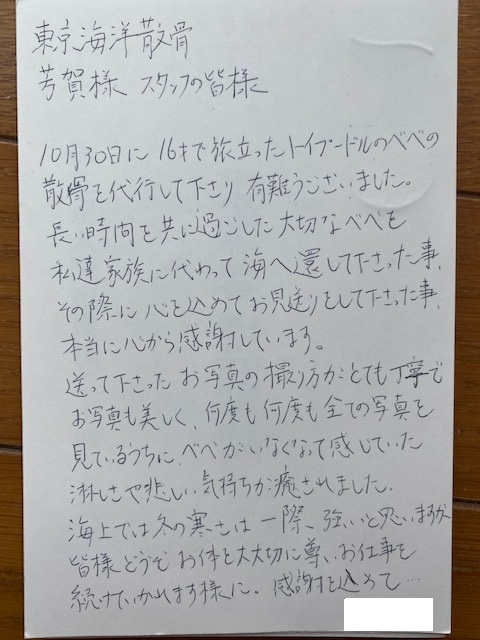 東京海洋散骨
芳賀様 スタッフの皆様
10月30日に16才で旅立ったトイプードルのベベの
散骨を代行して下さり 有難うございました。
長い時間を共に過ごした大切なベベを
私達家族に代わって海へ還して下さった事、
その際に心を込めてお見送りをして下さった事、
本当に心から感謝しています。
送って下さったお写真の撮り方がとても丁寧で
お写真も美しく、何度も何度も全ての写真を
見ているうちに、ベベがいなくなって感じていた
淋しさや悲しい気持ちが癒されました。
海上では冬の寒さは一際、強いと思いますが
皆様どうぞお体を大切に尊い、お仕事を
続けていかれます様に。感謝を込めて…